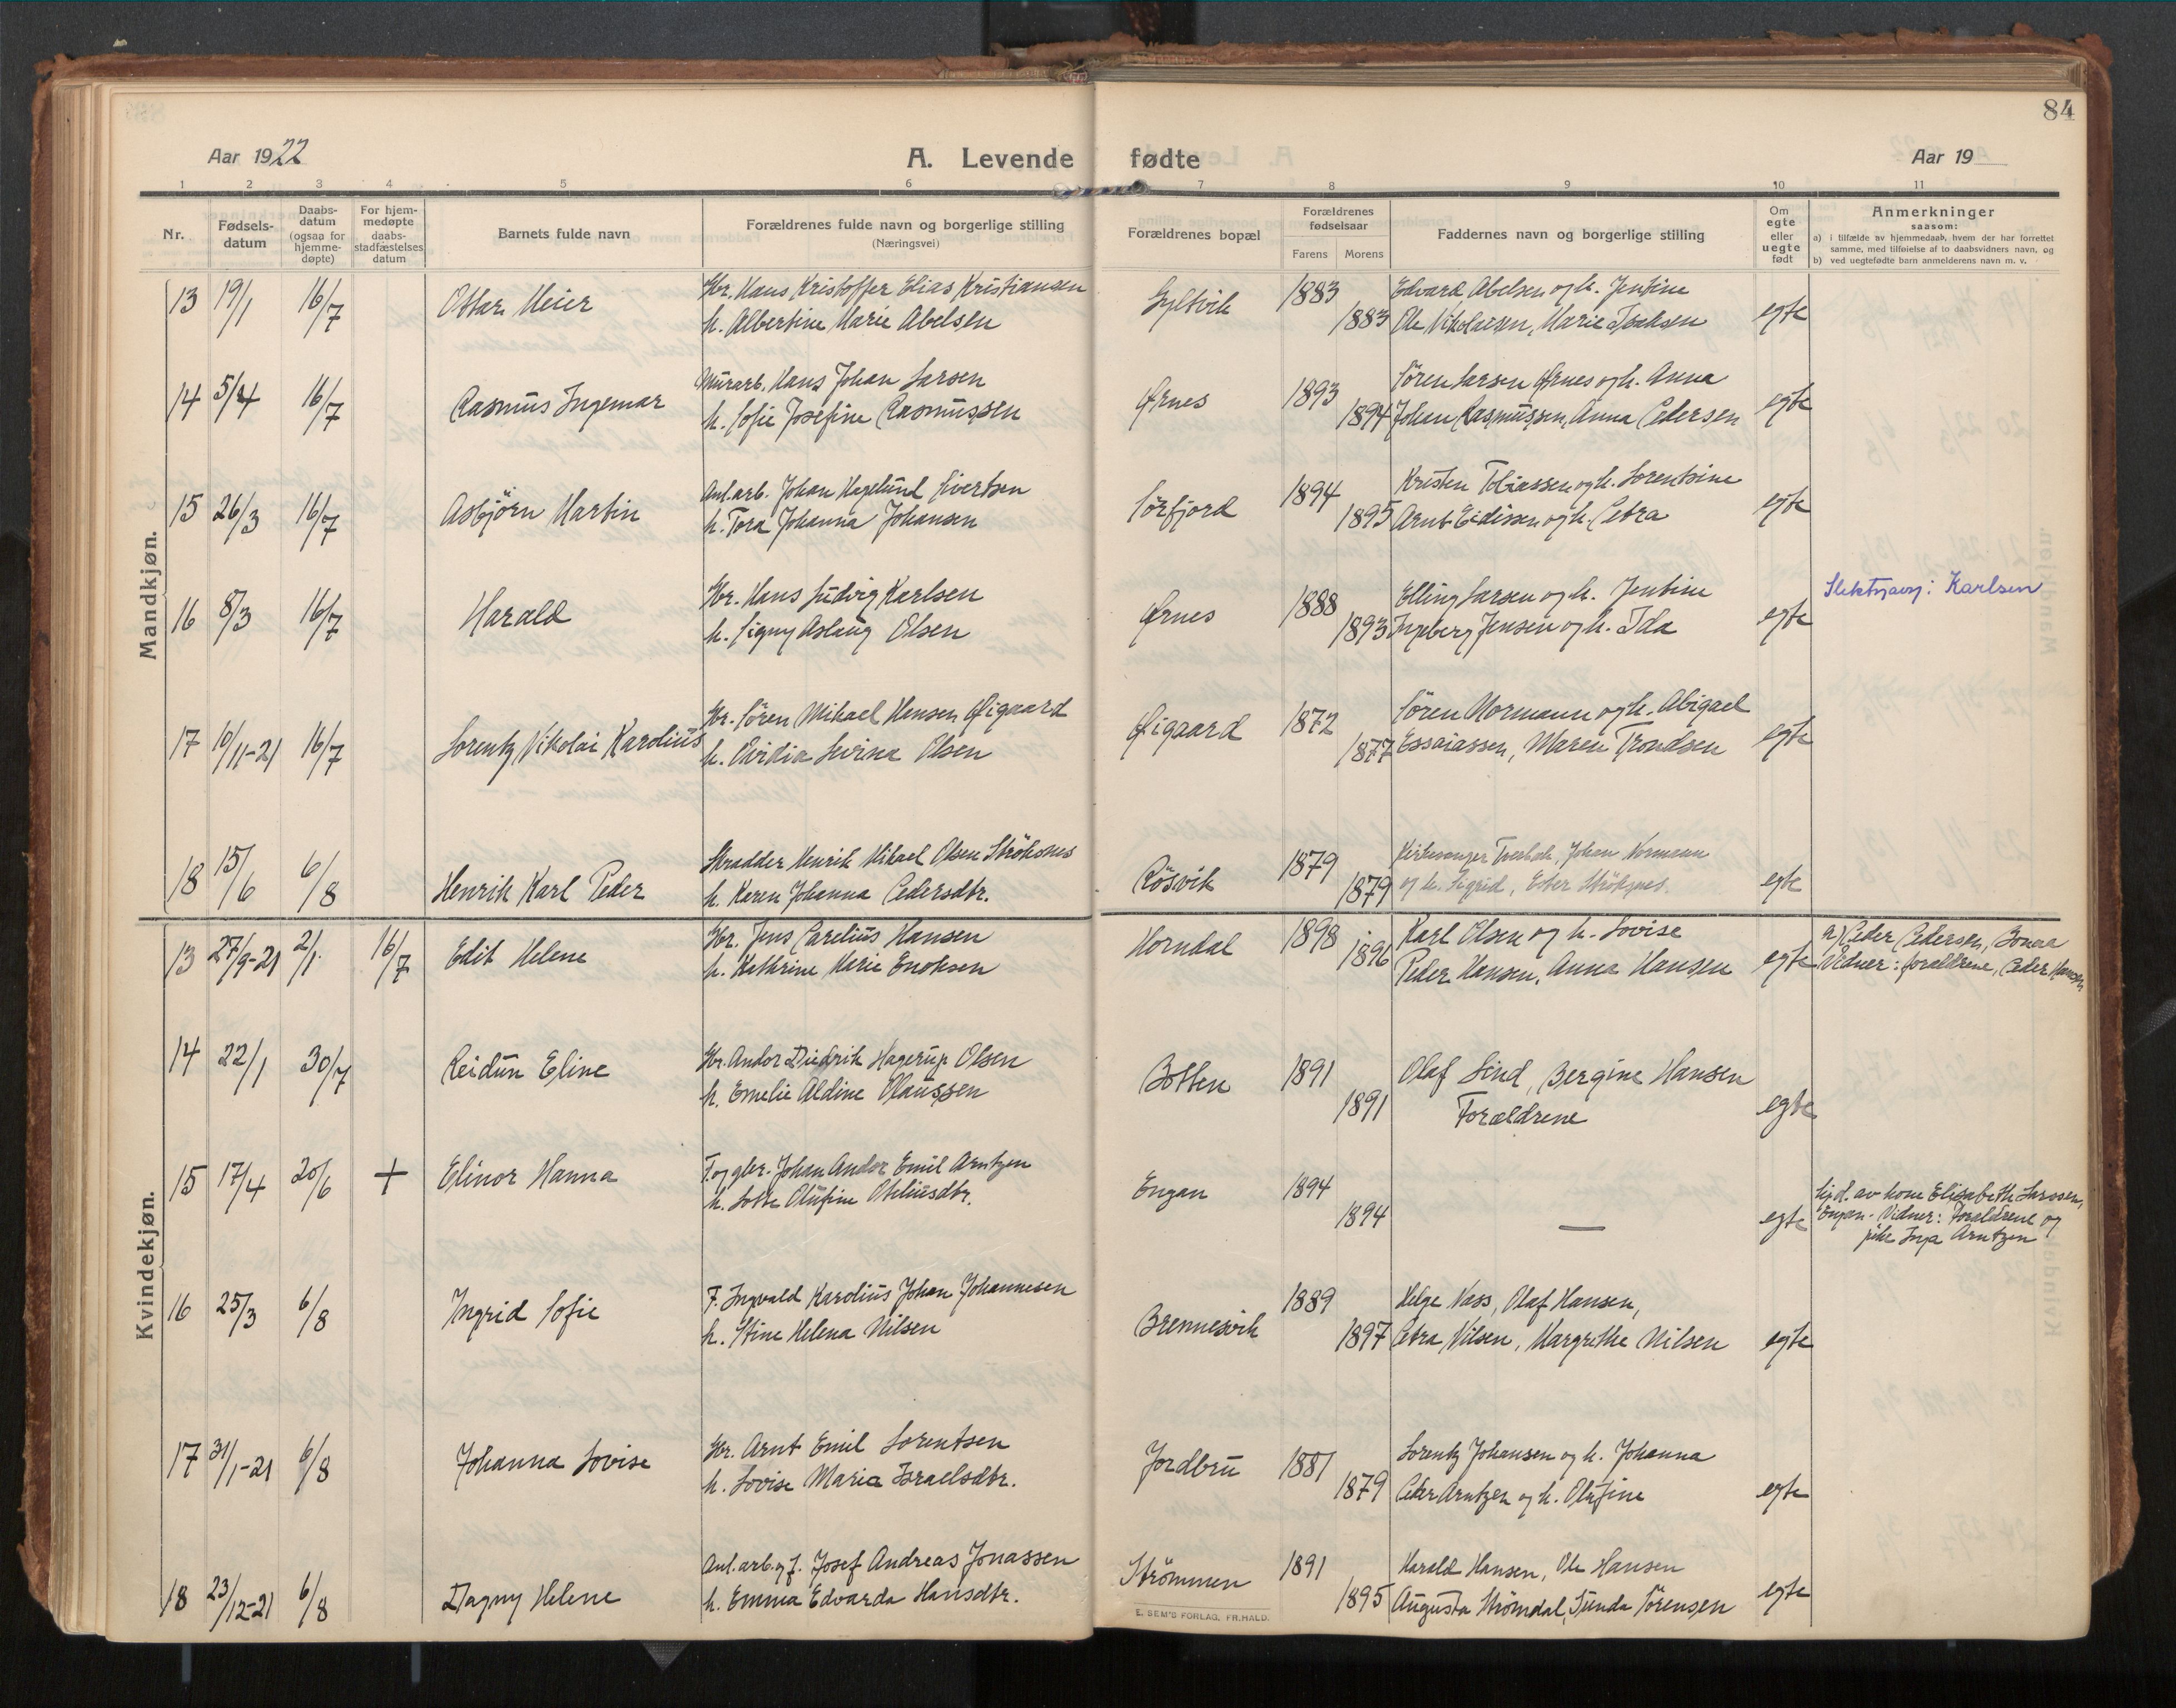 84
Aar 1922
A. Levende fødte
Aar 19
1 2 3 4 5 6 7 8 9 10 11
Nr.
Fødsels-
datum
Daabs-
datum
(ogsaa for
hjemme-
døpte)
For hjem-
medøpte
daabs-
stadfæstelses
datum
Barnets fulde navn
Forældrenes fulde navn og borgerlige stilling
(Næringsvei)
Forældrenes bopæl
Forældrenes
fødselsaar
Farens Morens
Faddernes navn og borgerlige stilling
Om
egte
eller
uegte
født
Anmerkninger
saasom:
a) i tilfælde av hjemmedaab, hvem der har forrettet
samme, med tilføielse af to daabsvidners navn, og
b) ved uegtefødte barn anmelderens navn m. v.
Mandkjøn.
13 19/1 16/7 Ottar Meier
Gbr. Hans Kristoffer Elias Kristiansen
h. Albertine Marie Abelsen
Syltvik 1883 1883
Edvard Abelsen og h. Jentine
Ole Nikolaisen, Marie Isaksen
egte
14 5/4 16/7 Rasmus Ingemar
Murarb. Hans Johan Larsen
h. Sofie Josefine Rasmussen
Ørnes 1893 1894
Søren Larsen Ørnes og h. Anna
Johan Rasmussen, Anna Pedersen
egte
15 26/3 16/7 Asbjörn Martin
Anl.arb. Johan Hagelund Sivertsen
h. Tora Johanna Johansen
Sörfjord 1894 1895
Kristen Tobiassen og h. Lorentsine
Arnt Eidissen og h. Petra
egte
16 8/3 16/7 Harald
Gbr. Hans Ludvig Karlsen
h. Signy Aslaug Olsen
Ørnes 1888 1893
Elling Larsen og h. Jentine
Ingeberg Jensen og h. Ida
egte
Slektsnavn: Karlsen
17 10/11-21 16/7 Lorentz Nikolai Karolius
Gbr. Sören Mikael Hansen Øigaard
h. Ovidia Lovisa Olsen
Øigaard 1872 1877
Sören Normann og h. Abigael
Essaiassen, Maren Trondsen
egte
18 15/6 6/8 Henrik Karl Peder
Skradder Henrik Mikael Olsen Ströksnes
h. Karen Johanna Pedersdtr.
Rösvik 1879 1879
Kirkesanger Tverbak, Johan Normann
og h. Sigrid, Ester Ströksnes.
egte
Kvindekjøn.
13 27/9-21 2/1 16/7 Edit Helene
Gbr. Jens Parelius Hansen
h. Kathrine Marie Enoksen
Horndal 1898 1896
Karl Olsen og h. Lovise
Peder Hansen, Anna Hansen
egte
a) Peder Pedersen, Bonaa
Vidner: foraldrene, Peder Hansen
14 22/1 30/7 Reidun Eline
Gbr. Andor Diedrik Hagerup Olsen
h. Emelie Aldine Olaussen
Botten 1891 1891
Olaf Lind, Bergine Hansen
Forældrene
egte
15 17/4 20/6 + Elinor Hanna
F. og gbr. Johan Andor Emil Arntzen
h. Lotte Olufine Oteliusdtr.
Engan 1894 1894
—
egte
Hjd. av kone Elisabeth Larssen,
Engan. Vidner: Foraldrene og
pike Inga Arntzen
16 25/3 6/8 Ingrid Sofie
F. Ingvald Karolius Johan Johannesen
h. Stine Helena Nilsen
Brennesvik 1889 1897
Helge Vass, Olaf Hansen,
Petra Nilsen, Margrethe Nilsen
egte
17 31/1-21 6/8 Johanna Lovise
Gbr. Arnt Emil Lorentsen
h. Lovise Maria Israelsdtr.
Jordbru 1881 1879
Lorentz Johansen og h. Johanna
Peder Arntzen og h. Olufine
egte
18 23/12-21 6/8 Dagny Helene
Anl.arb. og f. Josef Andreas Jonassen
h. Emma Edvarda Hansdtr.
Strömmen 1891 1895
Harald Hansen, Ole Hansen
Augusta Strömdal, Tunda Sörensen
egte
E. SEM'S FORLAG, FR.HALD.